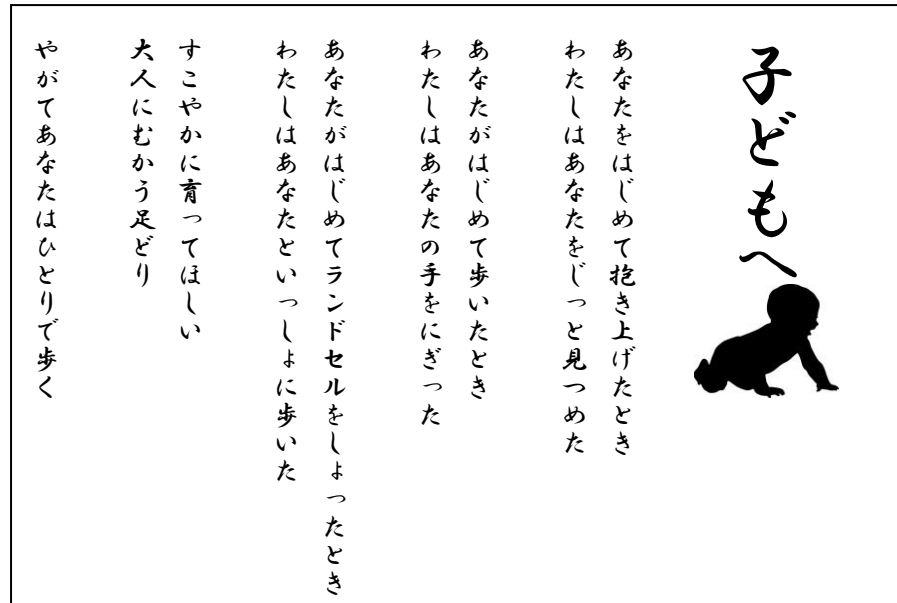 子どもへ
あなたをはじめて抱き上げたとき
わたしはあなたをじっと見つめた
あなたがはじめて歩いたとき
わたしはあなたの手をにぎった
あなたがはじめてランドセルをしょったとき
わたしはあなたといっしょに歩いた
すこやかに育ってほしい
大人にむかう足どり
やがてあなたはひとりで歩く